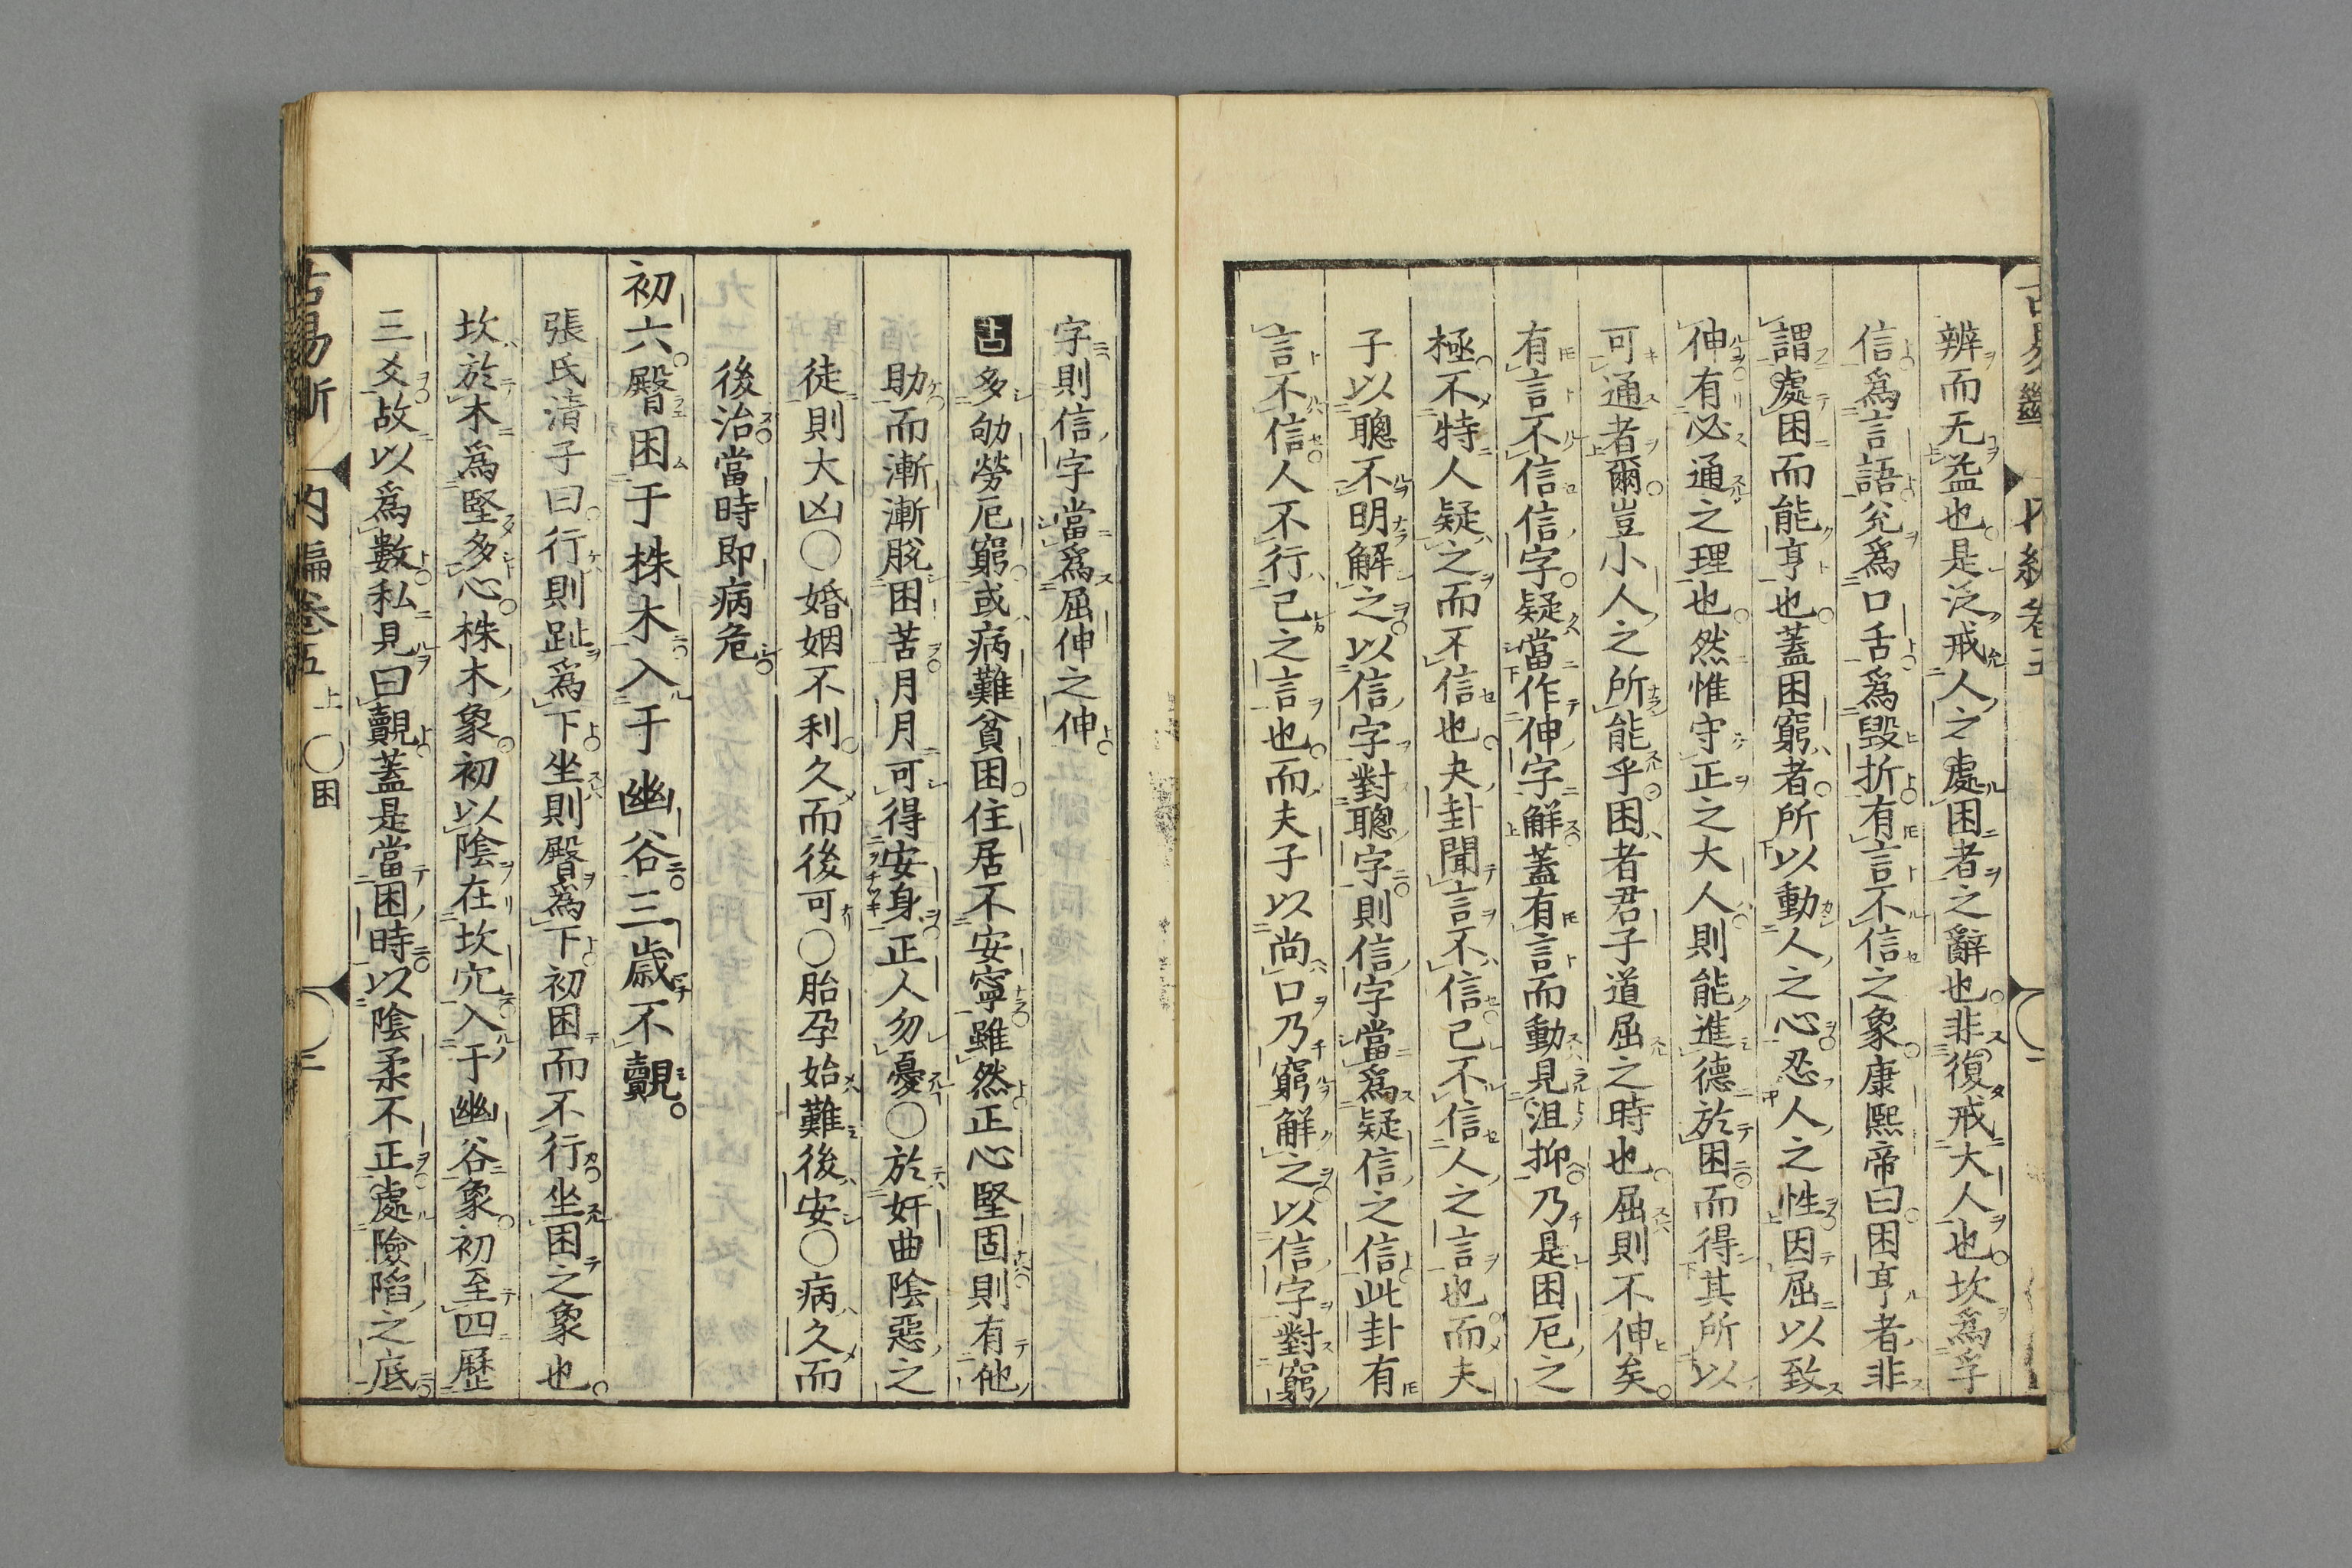 辨而无益也是泛戒人之處困者之辭也非復戒大人也坎為孚
信為言語兌為口舌為毀折有言不信之象康熙帝曰困亨者非
謂處困而能亨也蓋困窮者所以動人之心忍人之性因屈以致
伸有必通之理也然惟守正之大人則能進德於困而得其所以
可通者爾豈小人之所能乎困者君子道屈之時也屈則不伸矣
有言不信信字疑當作伸字解蓋有言而動見沮抑乃是困厄之
極不特人疑之而不信也夬卦聞言不信己不信人之言也而夫
子以聰不明解之以信字對聰字則信字當為疑信之信此卦有
言不信人不行己之言也而夫子以尚口乃窮解之以信字對窮
字則信字當為屈伸之伸
占多劬勞厄窮或病難貧困住居不安寧雖然正心堅固則有他
助而漸漸脫困苦月月可得安身正人勿憂○於奸曲陰惡之
徒則大凶○婚姻不利久而後可○胎孕始難後安○病久而
後治當時即病危
初六臀困于株木入于幽谷三歲不覿
張氏清子曰行則趾為下坐則臀為下初困而不行坐困之象也
坎於木為堅多心株木象初以陰在坎穴入于幽谷象初至四歷
三爻故以為數私見曰覿蓋是當困時以陰柔不正處險陷之底
占易斷 內編卷五 上 ○困 二